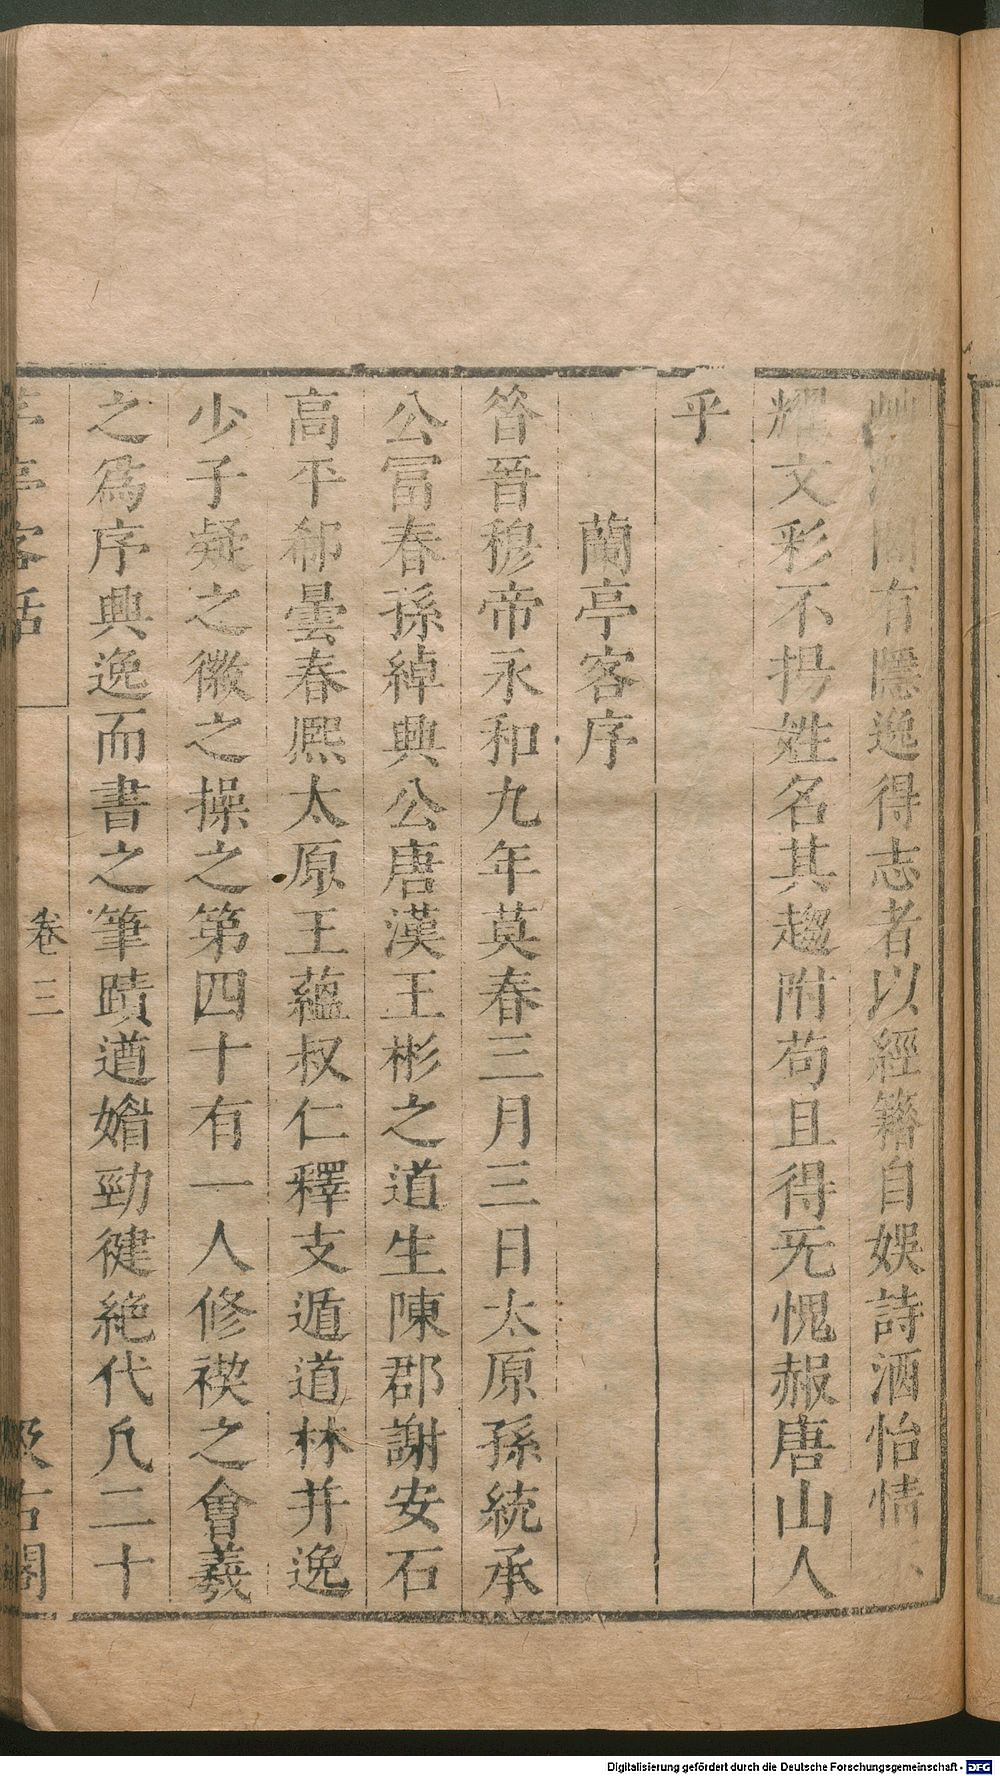 澤間有隱逸得志者以經籍自娛詩酒怡情不
耀文彩不揚姓名其趨附苟且得无愧赧唐山人
乎
蘭亭客序
昝晉穆帝永和九年莫春三月三日太原孫統承
公冨春孫綽興公唐漢王彬之道生陳郡謝安石
高平郗曇春熈太原王蘊叔仁釋支遁道林并逸
少子疑之徽之操之第四十有一人修禊之會羲
之爲序興逸而書之筆蹟遒媘勁徤絶代凡二十
亭客話 卷三 汲古閣
Digitalisierung gefördert durch die Deutsche Forschungsgemeinschaft - DFG